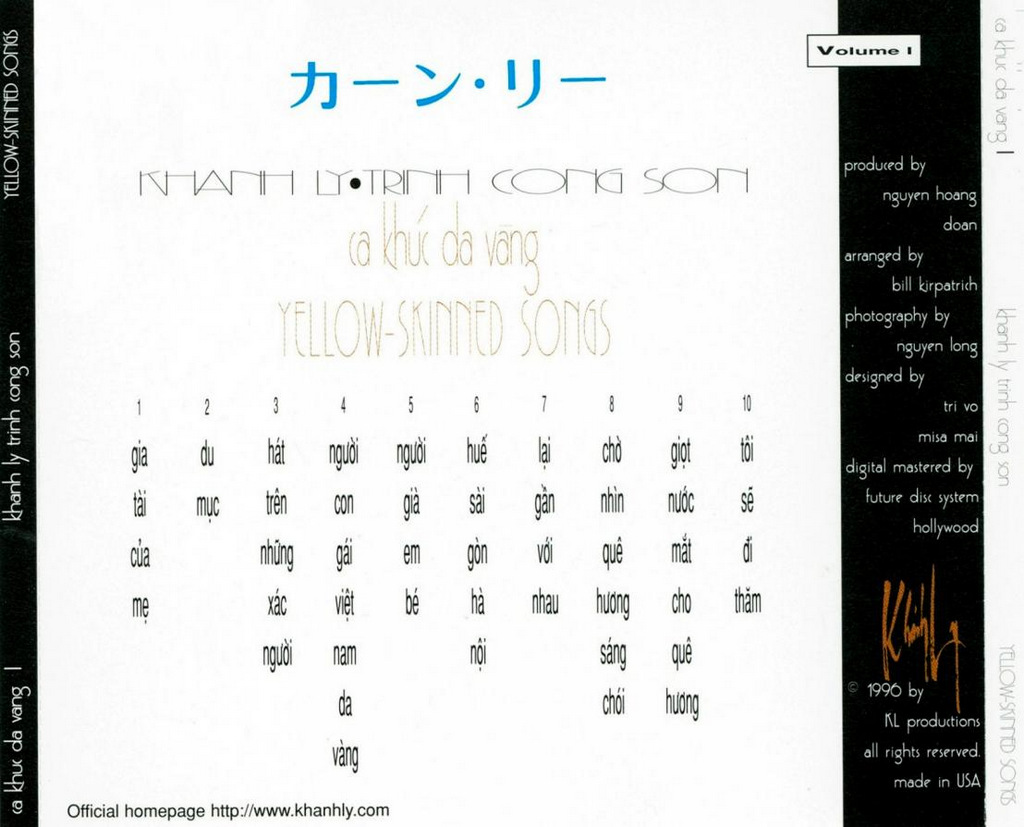 YELLOW-SKINNED SONGS
khanh ly trinh cong son
ca khuc da vang I
カーン・リー
KHANH LY•TRINH CONG SON
ca khúc da vàng
YELLOW-SKINNED SONGS
1 2 3 4 5 6 7 8 9 10
gia du hát người người huế lại chờ giọt tôi
tài mục trên con già sài gần nhìn nước sẽ
của những gái em gòn với quê mắt đi
mẹ xác việt bé hà nhau hương cho thăm
người nam nội sáng quê
da chói hương
vàng
Official homepage http://www.khanhly.com
Volume I
produced by
nguyen hoang
doan
arranged by
bill kirpatrich
photography by
nguyen long
designed by
tri vo
misa mai
digital mastered by
future disc system
hollywood
Khánh Ly
© 1996 by
KL productions
all rights reserved.
made in USA
ca khuc da vang I
khanh ly trinh cong son
YELLOW-SKINNED SONGS